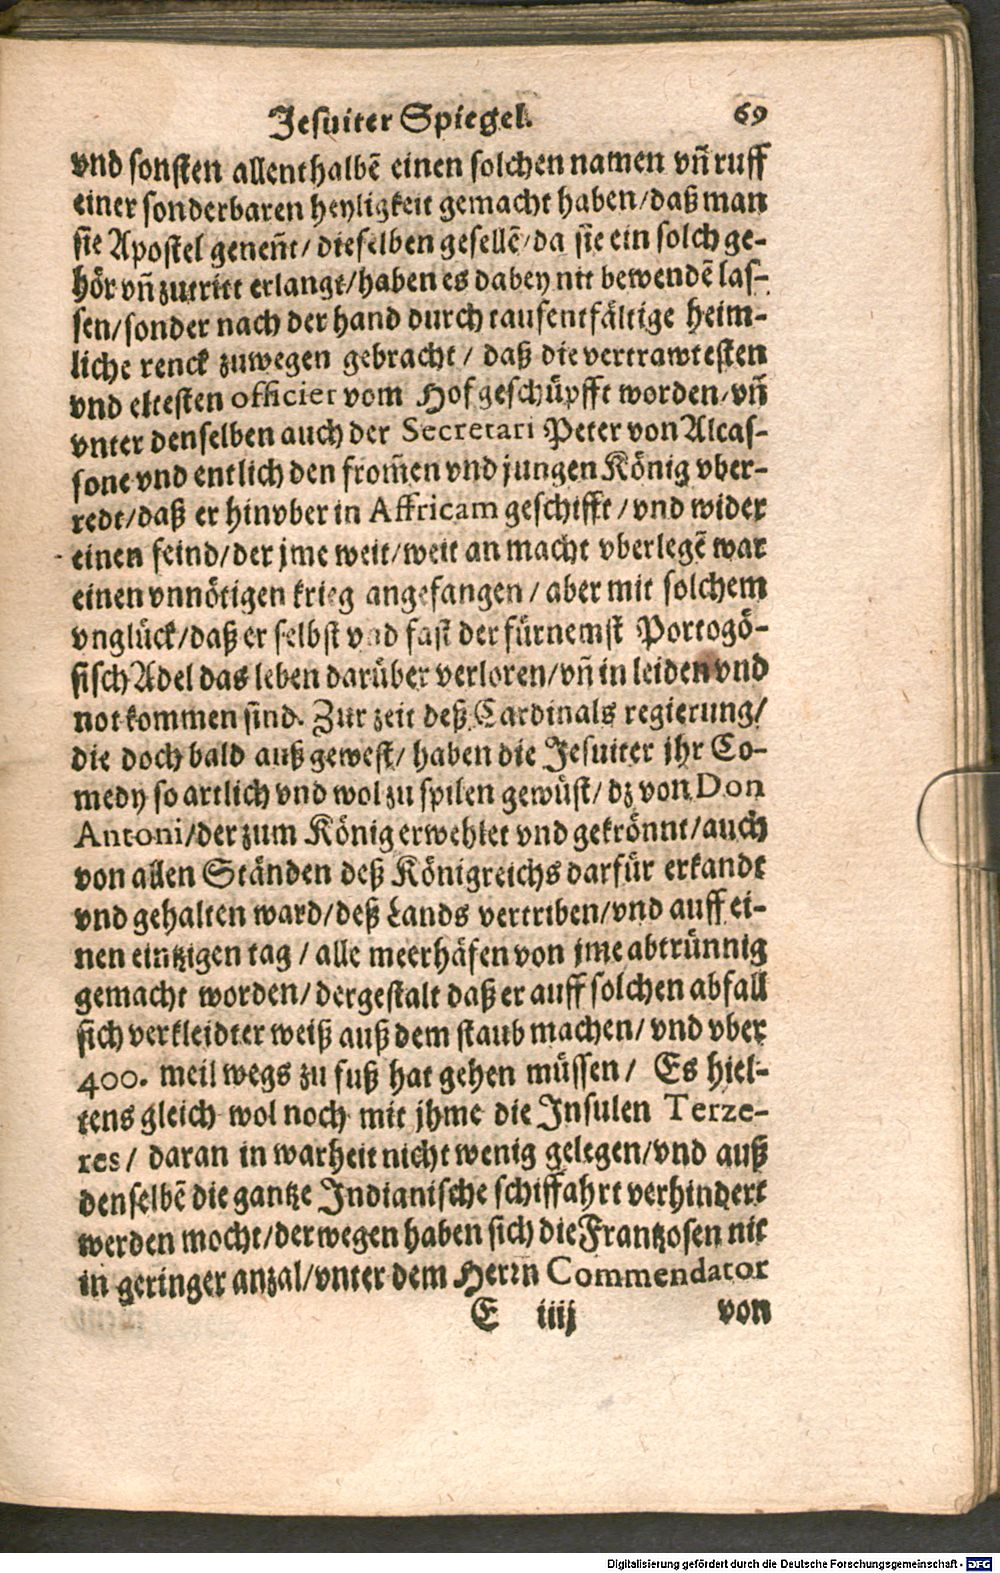 Jesuiter Spiegel. 69
vnd sonsten allenthalbē einen solchen namen vn̄ ruff
einer sonderbaren heyligkeit gemacht haben/daß man
sie Apostel geneñt/ dieselben gesellē/da sie ein solch ge-
hör vn̄ zutritt erlangt/haben es dabey nit bewendē las-
sen/sonder nach der hand durch tausentfältige heim-
liche renck zuwegen gebracht/ daß die vertrawtesten
vnd eltesten officier vom Hof geschüpfft worden/vn̄
vnter denselben auch der Secretari Peter von Alcas-
sone vnd entlich den from̄en vnd jungen König vber-
redt/daß er hinvber in Affricam geschifft/vnd wider
einen feind/der jme weit/weit an macht vberlegē war
einen vnnötigen krieg angefangen/ aber mit solchem
vnglück/daß er selbst vnd fast der fürnemst Portogö-
sisch Adel das leben darüber verloren/vn̄ in leiden vnd
not kommen sind. Zur zeit deß Cardinals regierung/
die doch bald auß gewest/ haben die Jesuiter jhr Co-
medy so artlich vnd wol zu spilen gewüst/dz von Don
Antoni/der zum König erwehlet vnd gekrönnt/auch
von allen Ständen deß Königreichs darfür erkandt
vnd gehalten ward/deß Lands vertriben/vnd auff ei-
nen eintzigen tag/ alle meerhäfen von jme abtrünnig
gemacht worden/dergestalt daß er auff solchen abfall
sich verkleidter weiß auß dem staub machen/ vnd vber
400. meil wegs zu fuß hat gehen müssen/ Es hiel-
tens gleich wol noch mit jhme die Insulen Terze-
res/ daran in warheit nicht wenig gelegen/vnd auß
denselbē die gantze Indianische schiffahrt verhindert
werden mocht/derwegen haben sich die Frantzosen nit
in geringer anzal/vnter dem Herrn Commendator
E iiij von
Digitalisierung gefördert durch die Deutsche Forschungsgemeinschaft - DFG